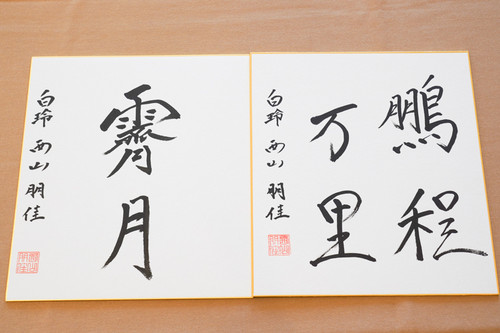 鵬程
万里
白玲 西山 朋佳
霽月
白玲 西山 朋佳